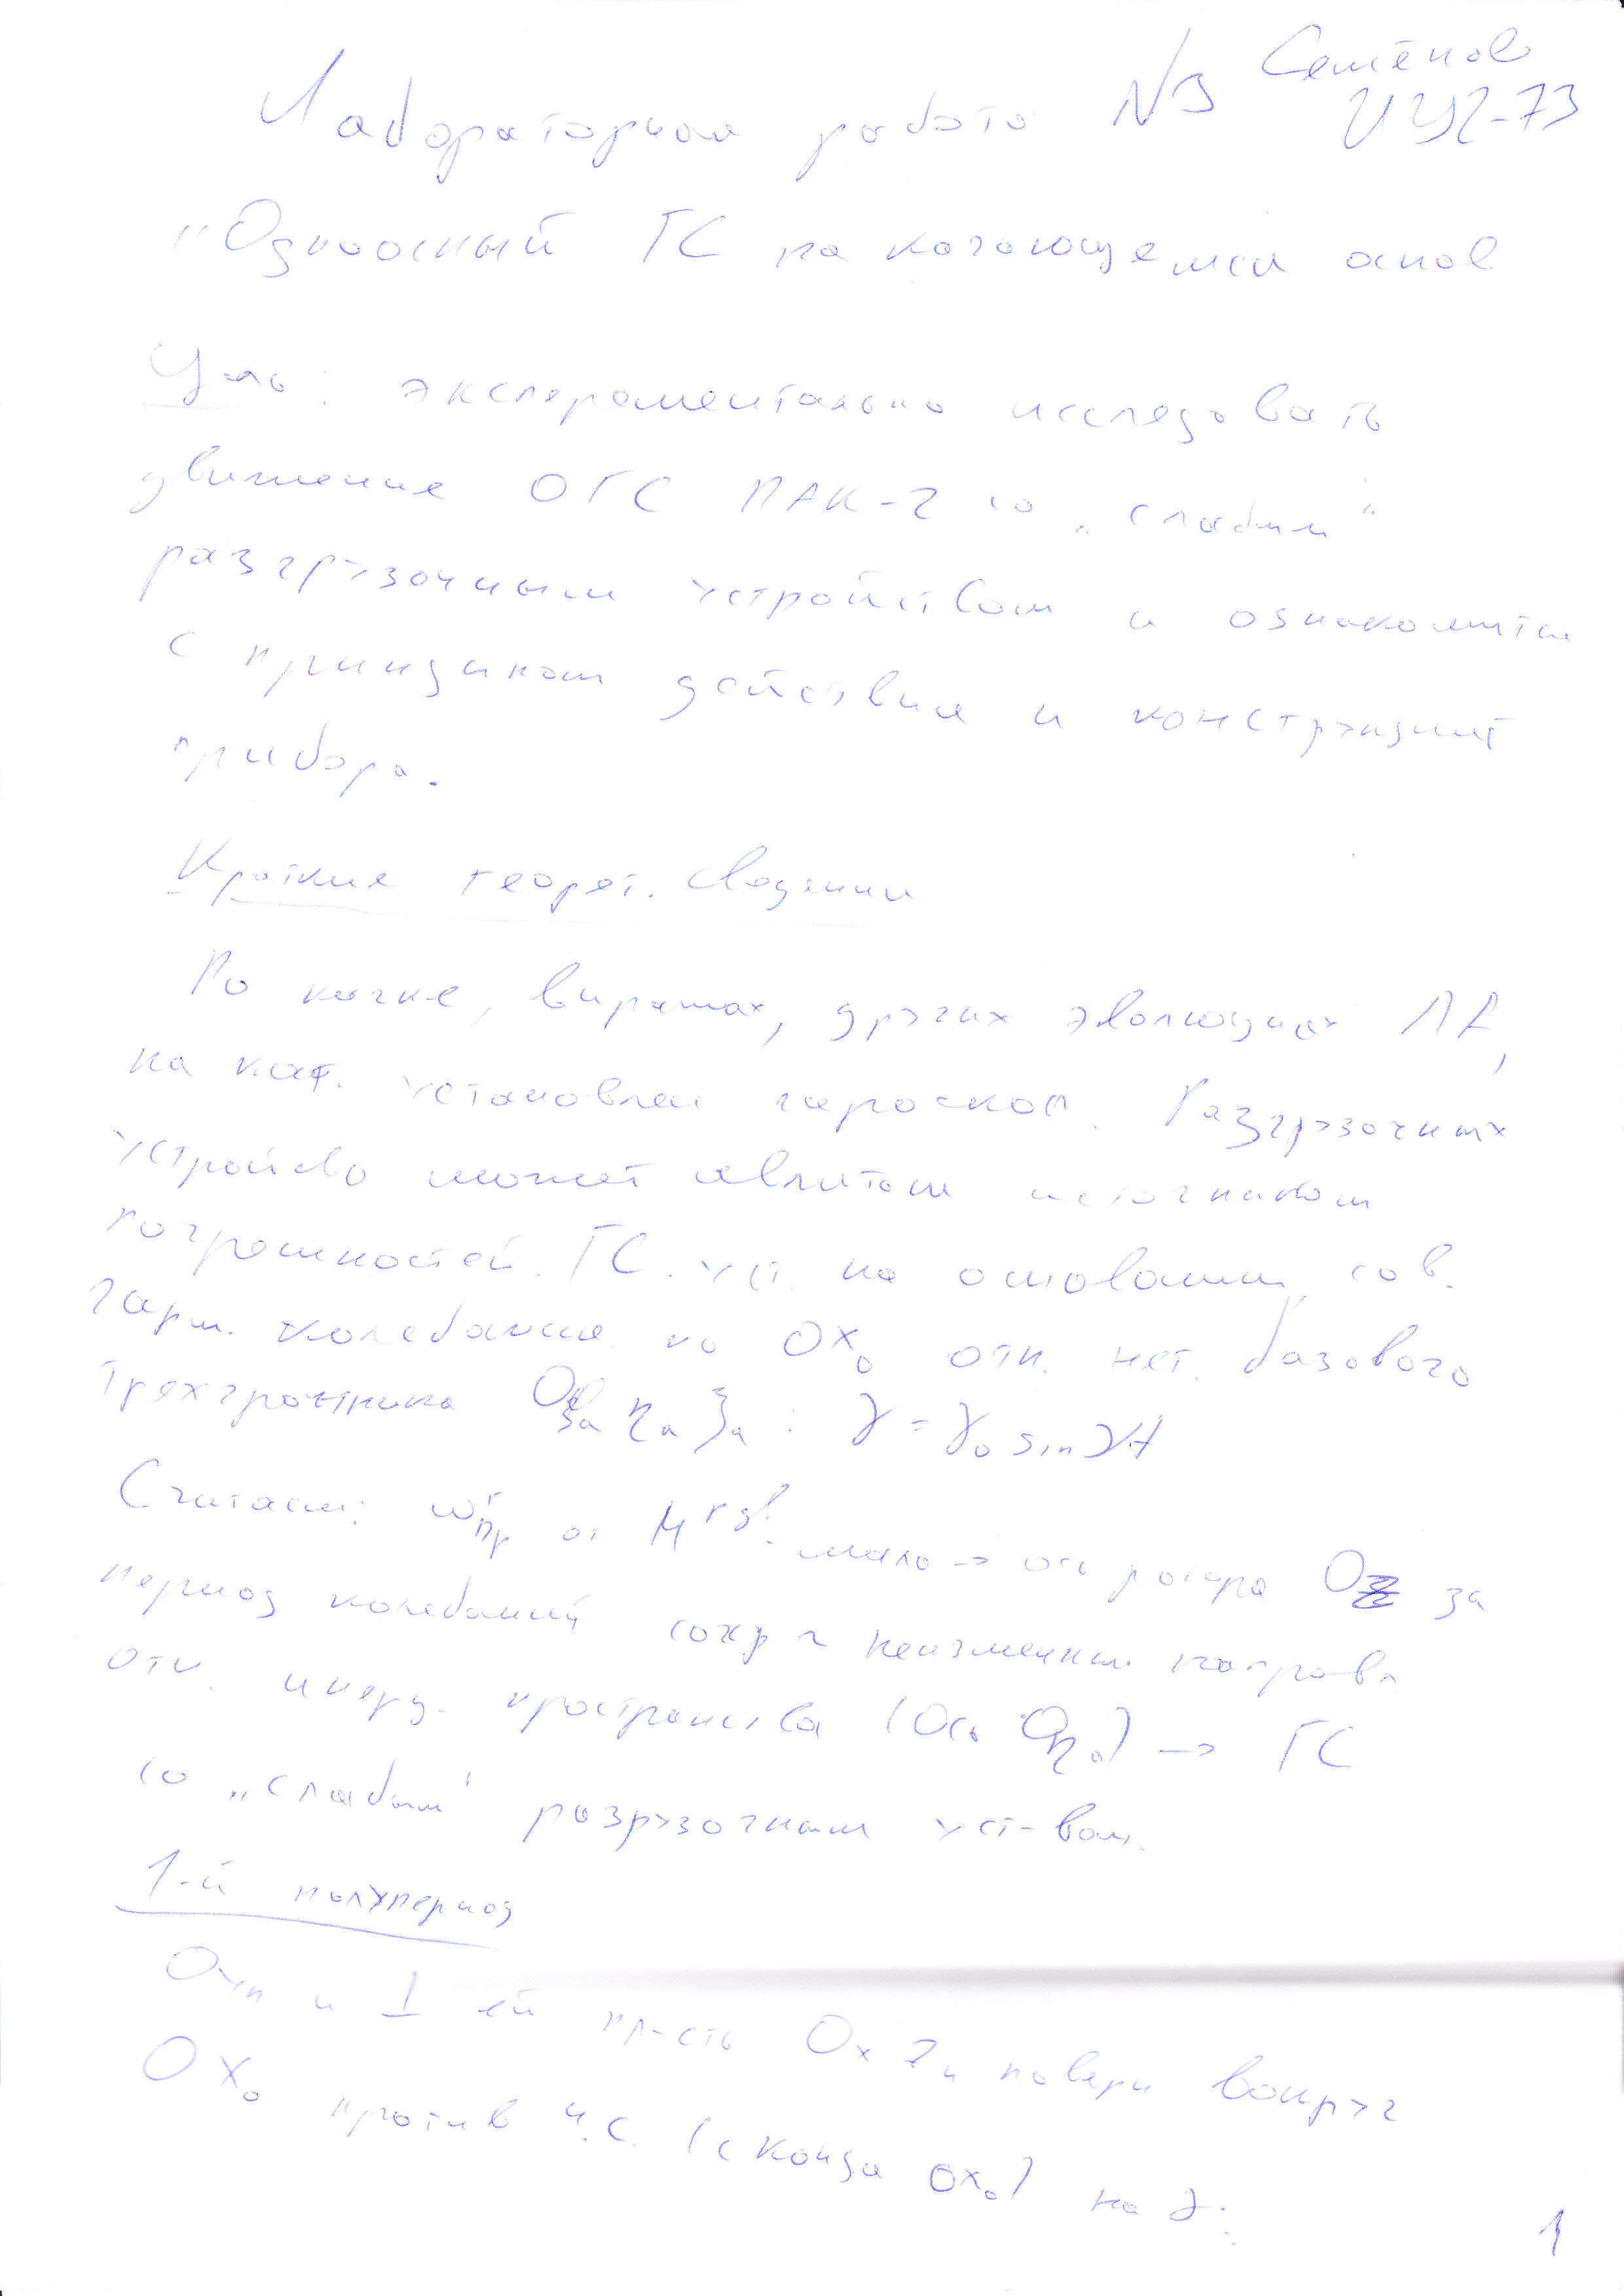 Семёнов
Лабораторная работа №3 ИУ2-73
"Одноосный ГС на качающемся основ.
Цель: эксперементально исследовать
движение ОГС ПАК-2 со „слабым“
разгрузочным устройством и ознакомится
с принципом действия и конструкцией
прибора.
Краткие теорет. сведения
По качке, виражах, других эволюциях ЛА,
на кот. установлен гироскоп. Разгрузочных
устройсво может являться источником
погрешностей. ГС. уст. на основании, сов.
гарм. колебание по OX₀ отн. нет. базового
трехгранника Oξₐηₐζₐ: γ = γ₀ sin νt
Считаем: от мало → ось ротора Oz за
период колебаний сохр неизменным направл
отн. инерц. пространства (Ось Oη₀) → ГС
со „слабым“ розрузочным уст-вом.
1-й полупериод
и ⊥ ей пл-сть Ox поверн вокруг
OX₀ против ч.с. (с конца OX₀) на γ:
1